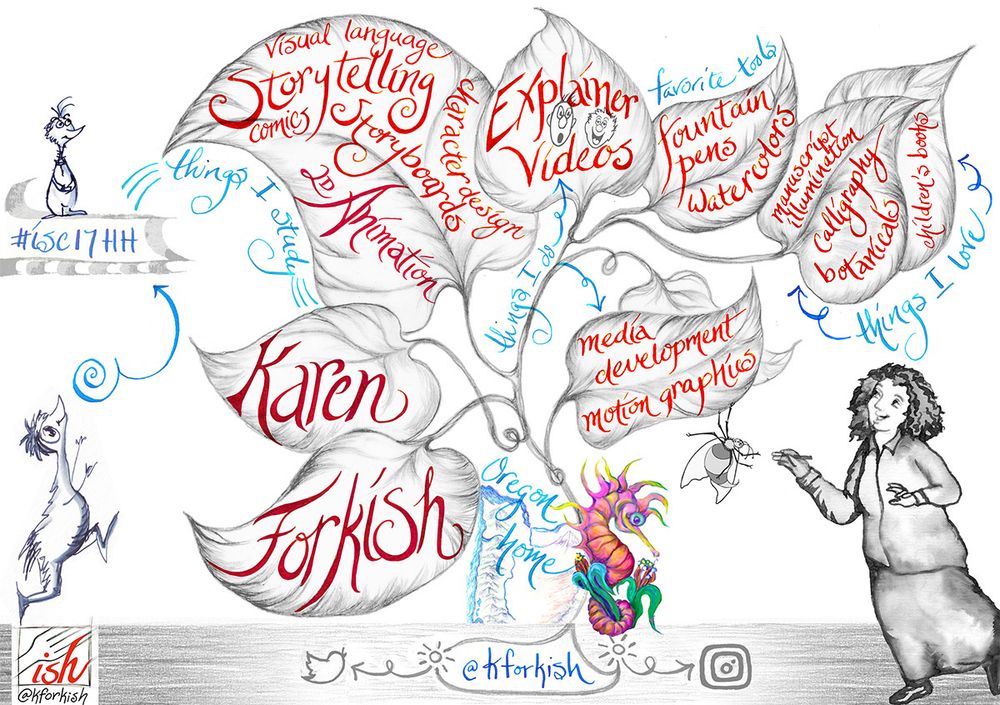 visual language
Storytelling
comics
Storyboards
character design
2D Animation
things I study
Explainer
Videos
things I do
favorite tools
fountain
pens
watercolors
manuscript
illumination
calligraphy
botanicals
children's books
things I love
#isc17HH
media
development
motion graphics
Karen
Forkish
Oregon
home
@kforkish
ish
@kforkish